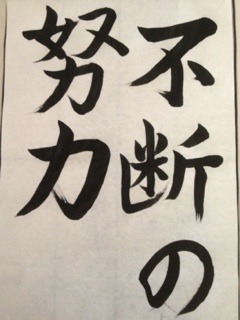 不断の
努力